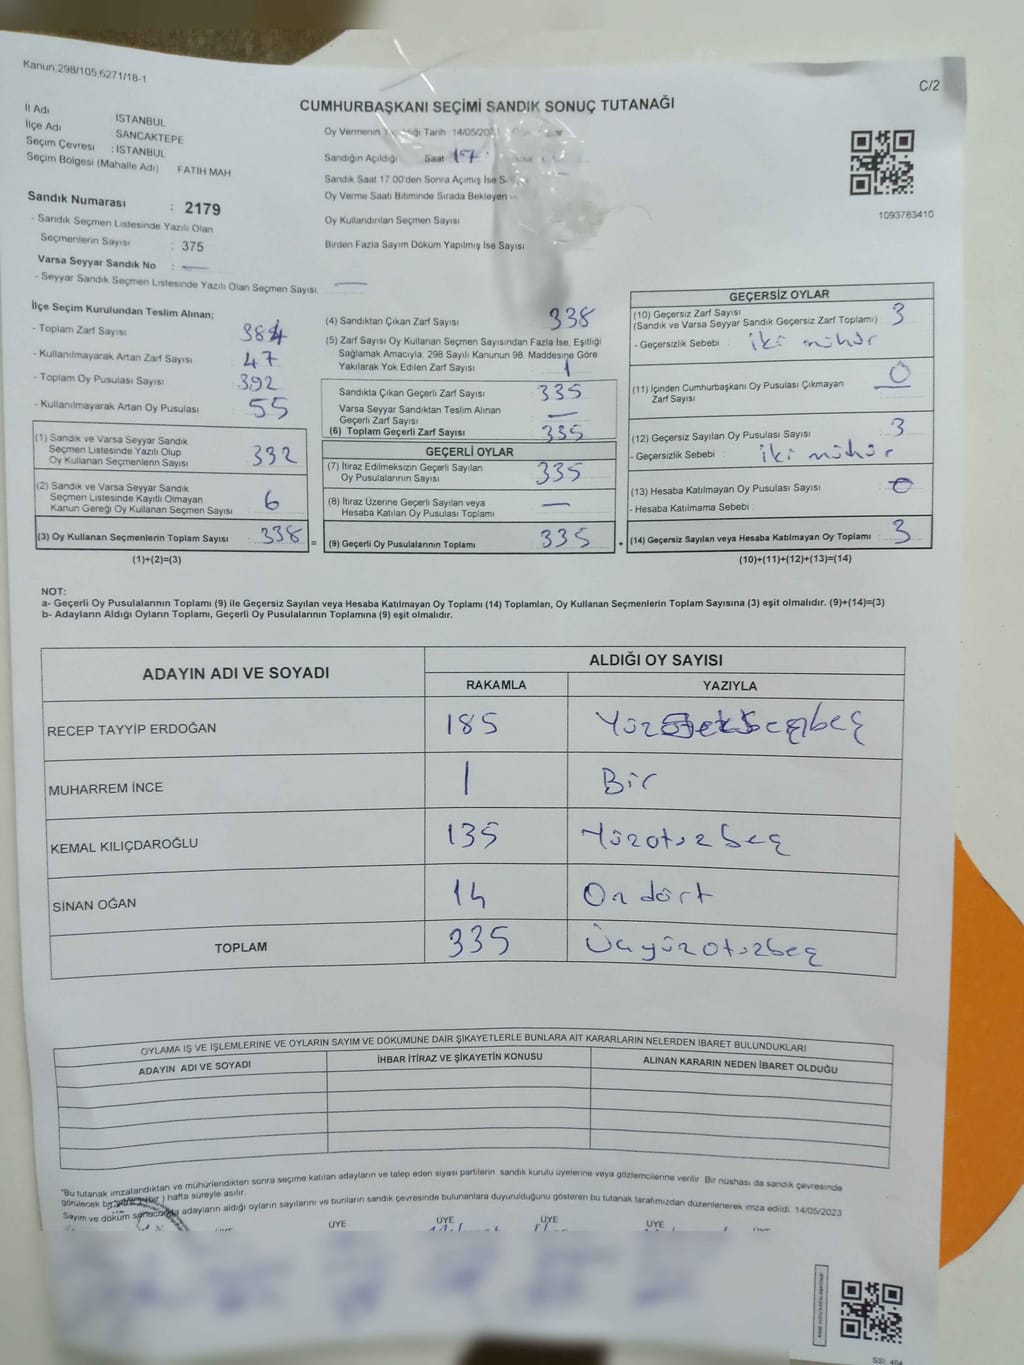 Kanun.298/105,6271/18-1
C/2
CUMHURBAŞKANI SEÇİMİ SANDIK SONUÇ TUTANAĞI
İl Adı İSTANBUL
İlçe Adı SANCAKTEPE
Seçim Çevresi : İSTANBUL
Seçim Bölgesi (Mahalle Adı) FATİH MAH
Sandık Numarası : 2179
- Sandık Seçmen Listesinde Yazılı Olan
Seçmenlerin Sayısı : 375
Varsa Seyyar Sandık No : —
- Seyyar Sandık Seçmen Listesinde Yazılı Olan Seçmen Sayısı. —
Oy Vermenin Tarih 14/05/202
Sandığın Açıldığı Saat 17
Sandık Saat 17.00'den Sonra Açılmış İse
Oy Verme Saati Bitiminde Sırada Bekleyen
Oy Kullandırılan Seçmen Sayısı
Birden Fazla Sayım Döküm Yapılmış İse Sayısı
1093763410
İlçe Seçim Kurulundan Teslim Alınan;
- Toplam Zarf Sayısı 384
- Kullanılmayarak Artan Zarf Sayısı 47
- Toplam Oy Pusulası Sayısı 392
- Kullanılmayarak Artan Oy Pusulası 55
(1) Sandık ve Varsa Seyyar Sandık
Seçmen Listesinde Yazılı Olup
Oy Kullanan Seçmenlerin Sayısı 332
(2) Sandık ve Varsa Seyyar Sandık
Seçmen Listesinde Kayıtlı Olmayan
Kanun Gereği Oy Kullanan Seçmen Sayısı 6
(3) Oy Kullanan Seçmenlerin Toplam Sayısı : 338
(1)+(2)=(3)
(4) Sandıktan Çıkan Zarf Sayısı 338
(5) Zarf Sayısı Oy Kullanan Seçmen Sayısından Fazla İse, Eşitliği
Sağlamak Amacıyla, 298 Sayılı Kanunun 98. Maddesine Göre
Yakılarak Yok Edilen Zarf Sayısı 1
Sandıkta Çıkan Geçerli Zarf Sayısı 335
Varsa Seyyar Sandıktan Teslim Alınan
Geçerli Zarf Sayısı —
(6) Toplam Geçerli Zarf Sayısı 335
GEÇERLİ OYLAR
(7) İtiraz Edilmeksizin Geçerli Sayılan
Oy Pusulalarının Sayısı 335
(8) İtiraz Üzerine Geçerli Sayılan veya
Hesaba Katılan Oy Pusulası Toplamı —
= (9) Geçerli Oy Pusulalarının Toplamı 335
GEÇERSİZ OYLAR
(10) Geçersiz Zarf Sayısı 3
(Sandık ve Varsa Seyyar Sandık Geçersiz Zarf Toplamı)
- Geçersizlik Sebebi : iki mühür
(11) İçinden Cumhurbaşkanı Oy Pusulası Çıkmayan
Zarf Sayısı 0
(12) Geçersiz Sayılan Oy Pusulası Sayısı 3
- Geçersizlik Sebebi : iki mühür
(13) Hesaba Katılmayan Oy Pusulası Sayısı 0
- Hesaba Katılmama Sebebi :
+ (14) Geçersiz Sayılan veya Hesaba Katılmayan Oy Toplamı : 3
(10)+(11)+(12)+(13)=(14)
NOT:
a- Geçerli Oy Pusulalarının Toplamı (9) ile Geçersiz Sayılan veya Hesaba Katılmayan Oy Toplamı (14) Toplamları, Oy Kullanan Seçmenlerin Toplam Sayısına (3) eşit olmalıdır. (9)+(14)=(3)
b- Adayların Aldığı Oyların Toplamı, Geçerli Oy Pusulalarının Toplamına (9) eşit olmalıdır.
ADAYIN ADI VE SOYADI ALDIĞI OY SAYISI
RAKAMLA YAZIYLA
RECEP TAYYİP ERDOĞAN 185 Yüzseksenbeş
MUHARREM İNCE 1 Bir
KEMAL KILIÇDAROĞLU 135 Yüzotuzbeş
SİNAN OĞAN 14 On dört
TOPLAM 335 Üçyüzotuzbeş
OYLAMA İŞ VE İŞLEMLERİNE VE OYLARIN SAYIM VE DÖKÜMÜNE DAİR ŞİKAYETLERLE BUNLARA AİT KARARLARIN NELERDEN İBARET BULUNDUKLARI
ADAYIN ADI VE SOYADI İHBAR İTİRAZ VE ŞİKAYETİN KONUSU ALINAN KARARIN NEDEN İBARET OLDUĞU
"Bu tutanak imzalandıktan ve mühürlendikten sonra seçime katılan adayların ve talep eden siyasi partilerin sandık kurulu üyelerine veya gözlemcilerine verilir. Bir nüshası da sandık çevresinde
görülecek bir hafta süreyle asılır.
Sayım ve döküm sonucunda adayların aldığı oyların sayılarını ve bunların sandık çevresinde bulunanlara duyurulduğunu gösteren bu tutanak tarafımızdan düzenlenerek imza edildi. 14/05/2023
ÜYE ÜYE ÜYE ÜYE